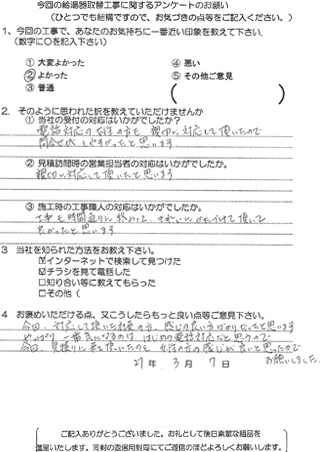 今回の給湯器取替工事に関するアンケートのお願い
(ひとつでも結構ですので、お気づきの点等をご記入ください。)
1、今回の工事で、あなたのお気持ちに一番近い印象を教えて下さい。
(数字に〇を記入下さい)
① 大変よかった
④ 悪い
② よかった
⑤ その他ご意見
③ 普通
2. そのように思われた訳を教えていただけませんか
① 当社の受付の対応はいかがでしたか?
電話対応の女性の方も 親切に対応して頂いたので
問合せがしやすかったと思います
② 見積訪問時の営業担当者の対応はいかがでしたか。
親切に対応して頂いたと思います
③ 施工時の工事職人の対応はいかがでしたか。
工事も時間通りに終わって、きれいにかたづけて頂いて
良かったと思います
3 当社を知られた方法をお教え下さい。
☑インターネットで検索して見つけた
☑チラシを見て電話した
□知り合い等に教えてもらった
□その他(
4 お褒めいただける点、又こうしたらもっと良い点等ご意見下さい。
今回、対応して頂いた社員の方、感じの良い方ばかりだったと思います
やっぱり一番気になるのは、はじめの電話対応だと思うので
今回、見積りに来て頂いたのも 女性の方の感じが良いと思ったので
お願いしました。
27年 3月 7日
ご記入ありがとうございました。お礼として後日素敵な粗品を
進呈いたします。同封の返信用封筒にてご返信のほどよろしくお願いします。